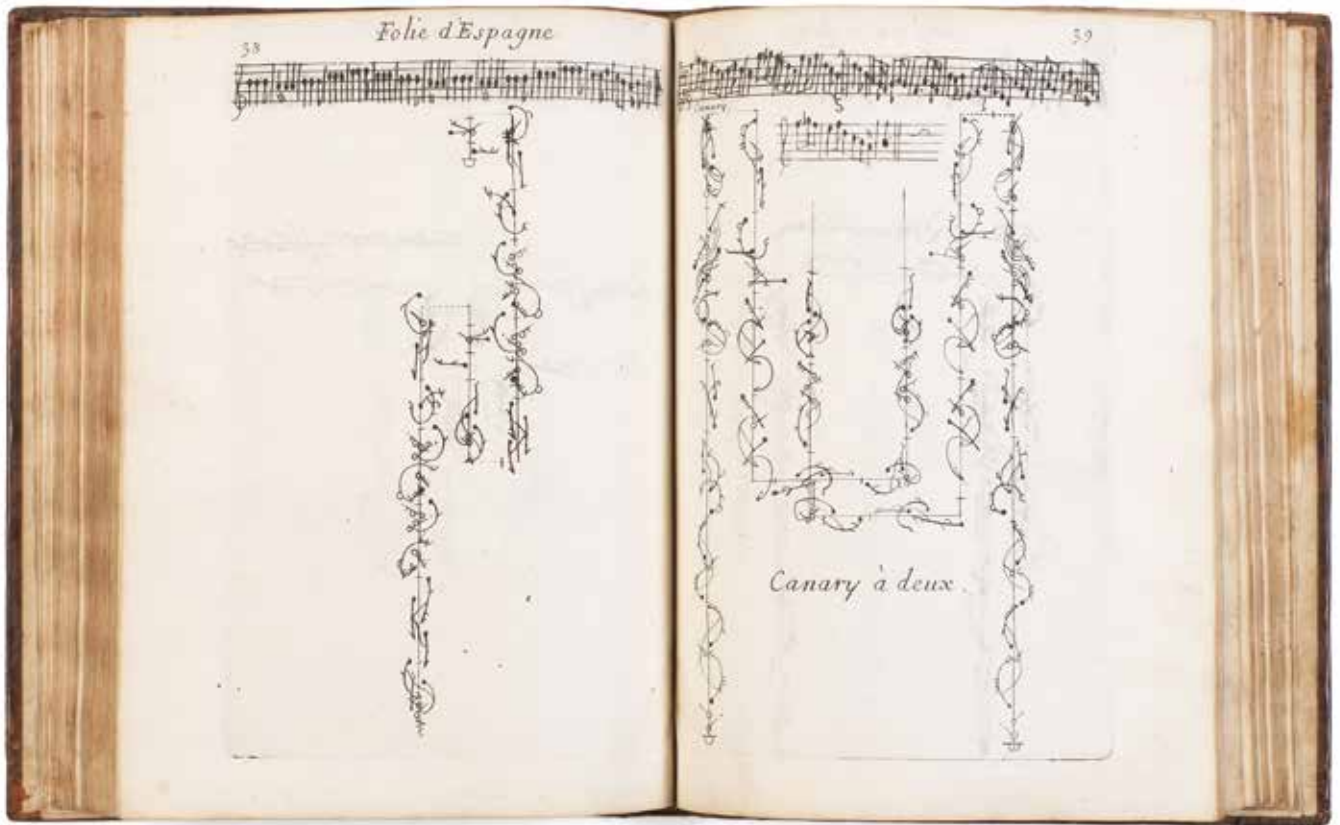 38
Folie d'Espagne
39
Canary
Canary à deux.